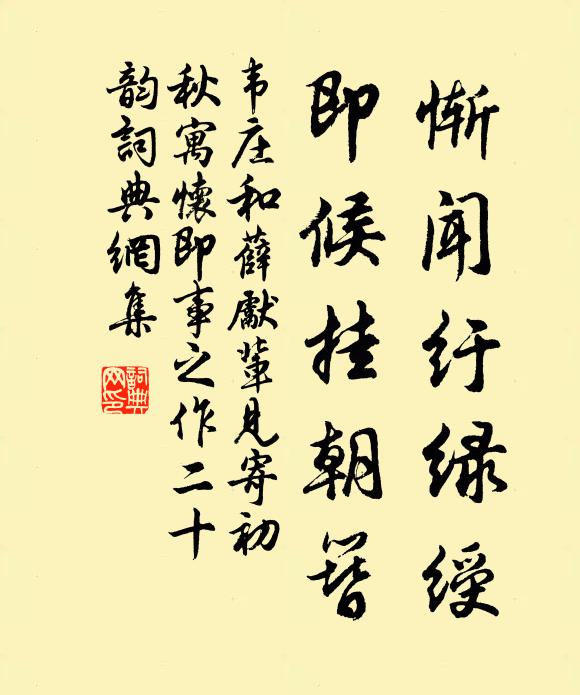 惭闻纡绿绶
即候挂朝簪
韦庄和薛獻輩見寄初
秋寓懷即事之作二十
韵詞典網集
詞典
网印